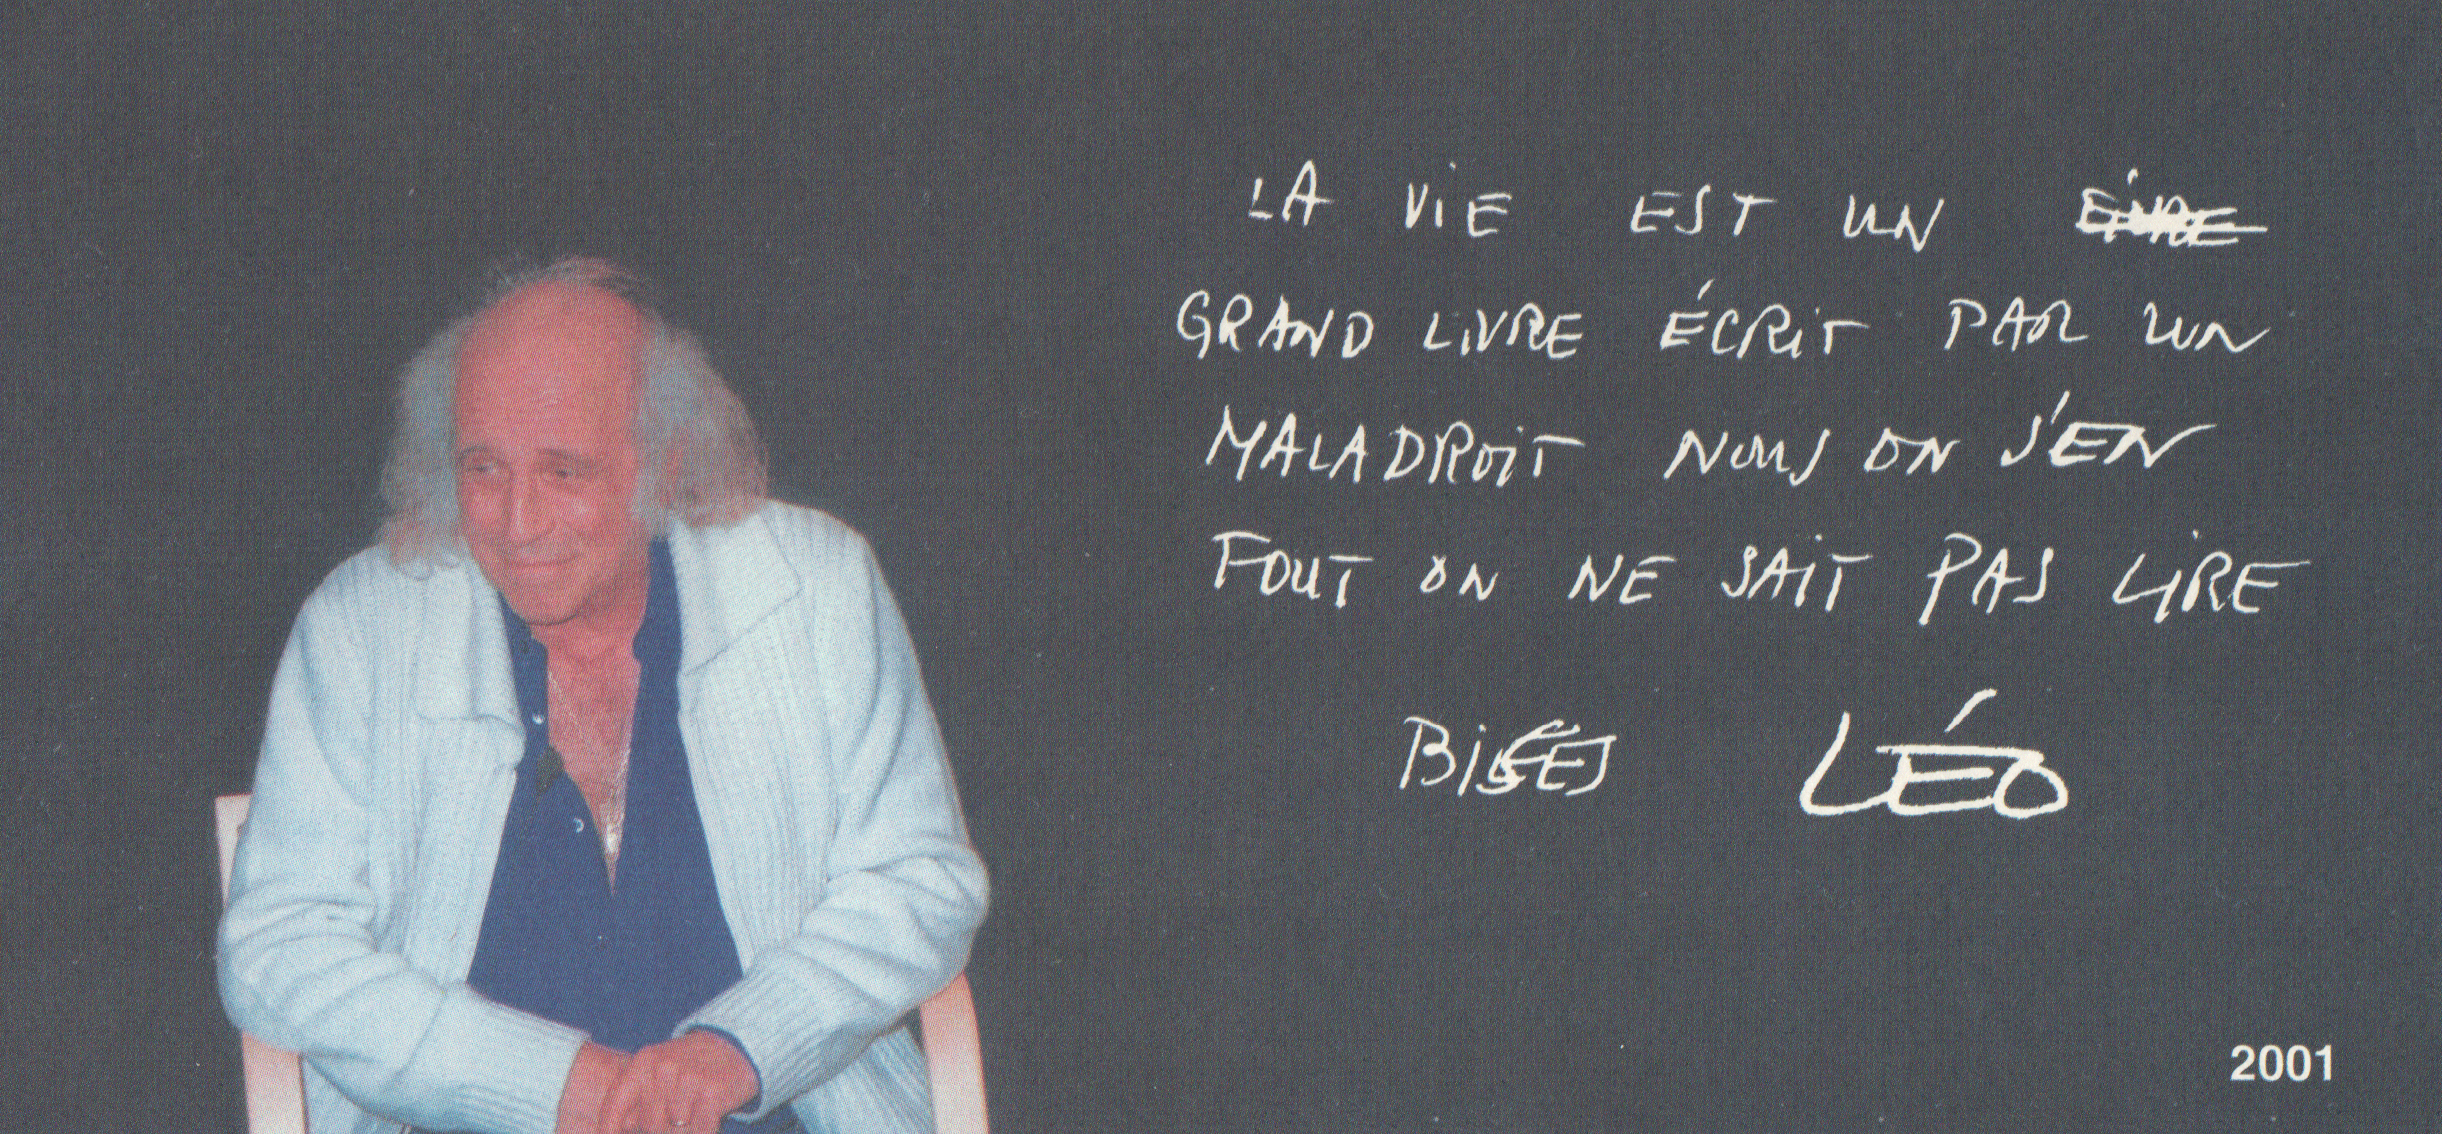 LA ViE EST UN
GRAND LiVRE ÉCRiT PAR UN
MALADROiT NOUS ON S'EN
FOUT ON NE SAiT PAS LiRE
BiSES LÉO
2001